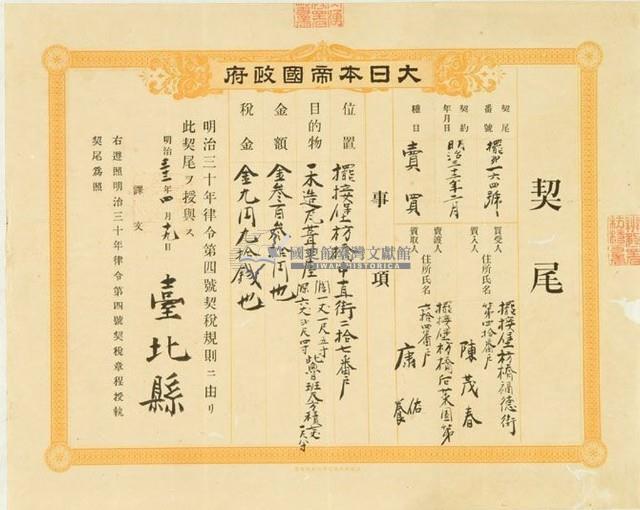 大日本帝國政府
契尾
契尾番號
擺第一六四號
契約年月日
明治三十三年二月
種目
賣買
買受人
買入人
住所氏名
擺接堡枋橋福德街
第四拾番戶
陳茂春
賣渡人
質取人
住所氏名
擺接堡枋橋后菜園第
六拾四番戶
康佑養
事項
位置
擺接堡枋橋中直街二拾七番戶
目的物
一木造瓦葺平屋
金額
金參百參拾円也
稅金
金九円九拾錢也
明治三十年律令第四號契稅規則ニ由リ
此契尾ヲ授與ス
明治三十三年四月十九日
臺北縣
譯文
右遵照明治三十年律令第四號契稅章程授執
契尾為照
國史館臺灣文獻館
TAIWAN HISTORICA